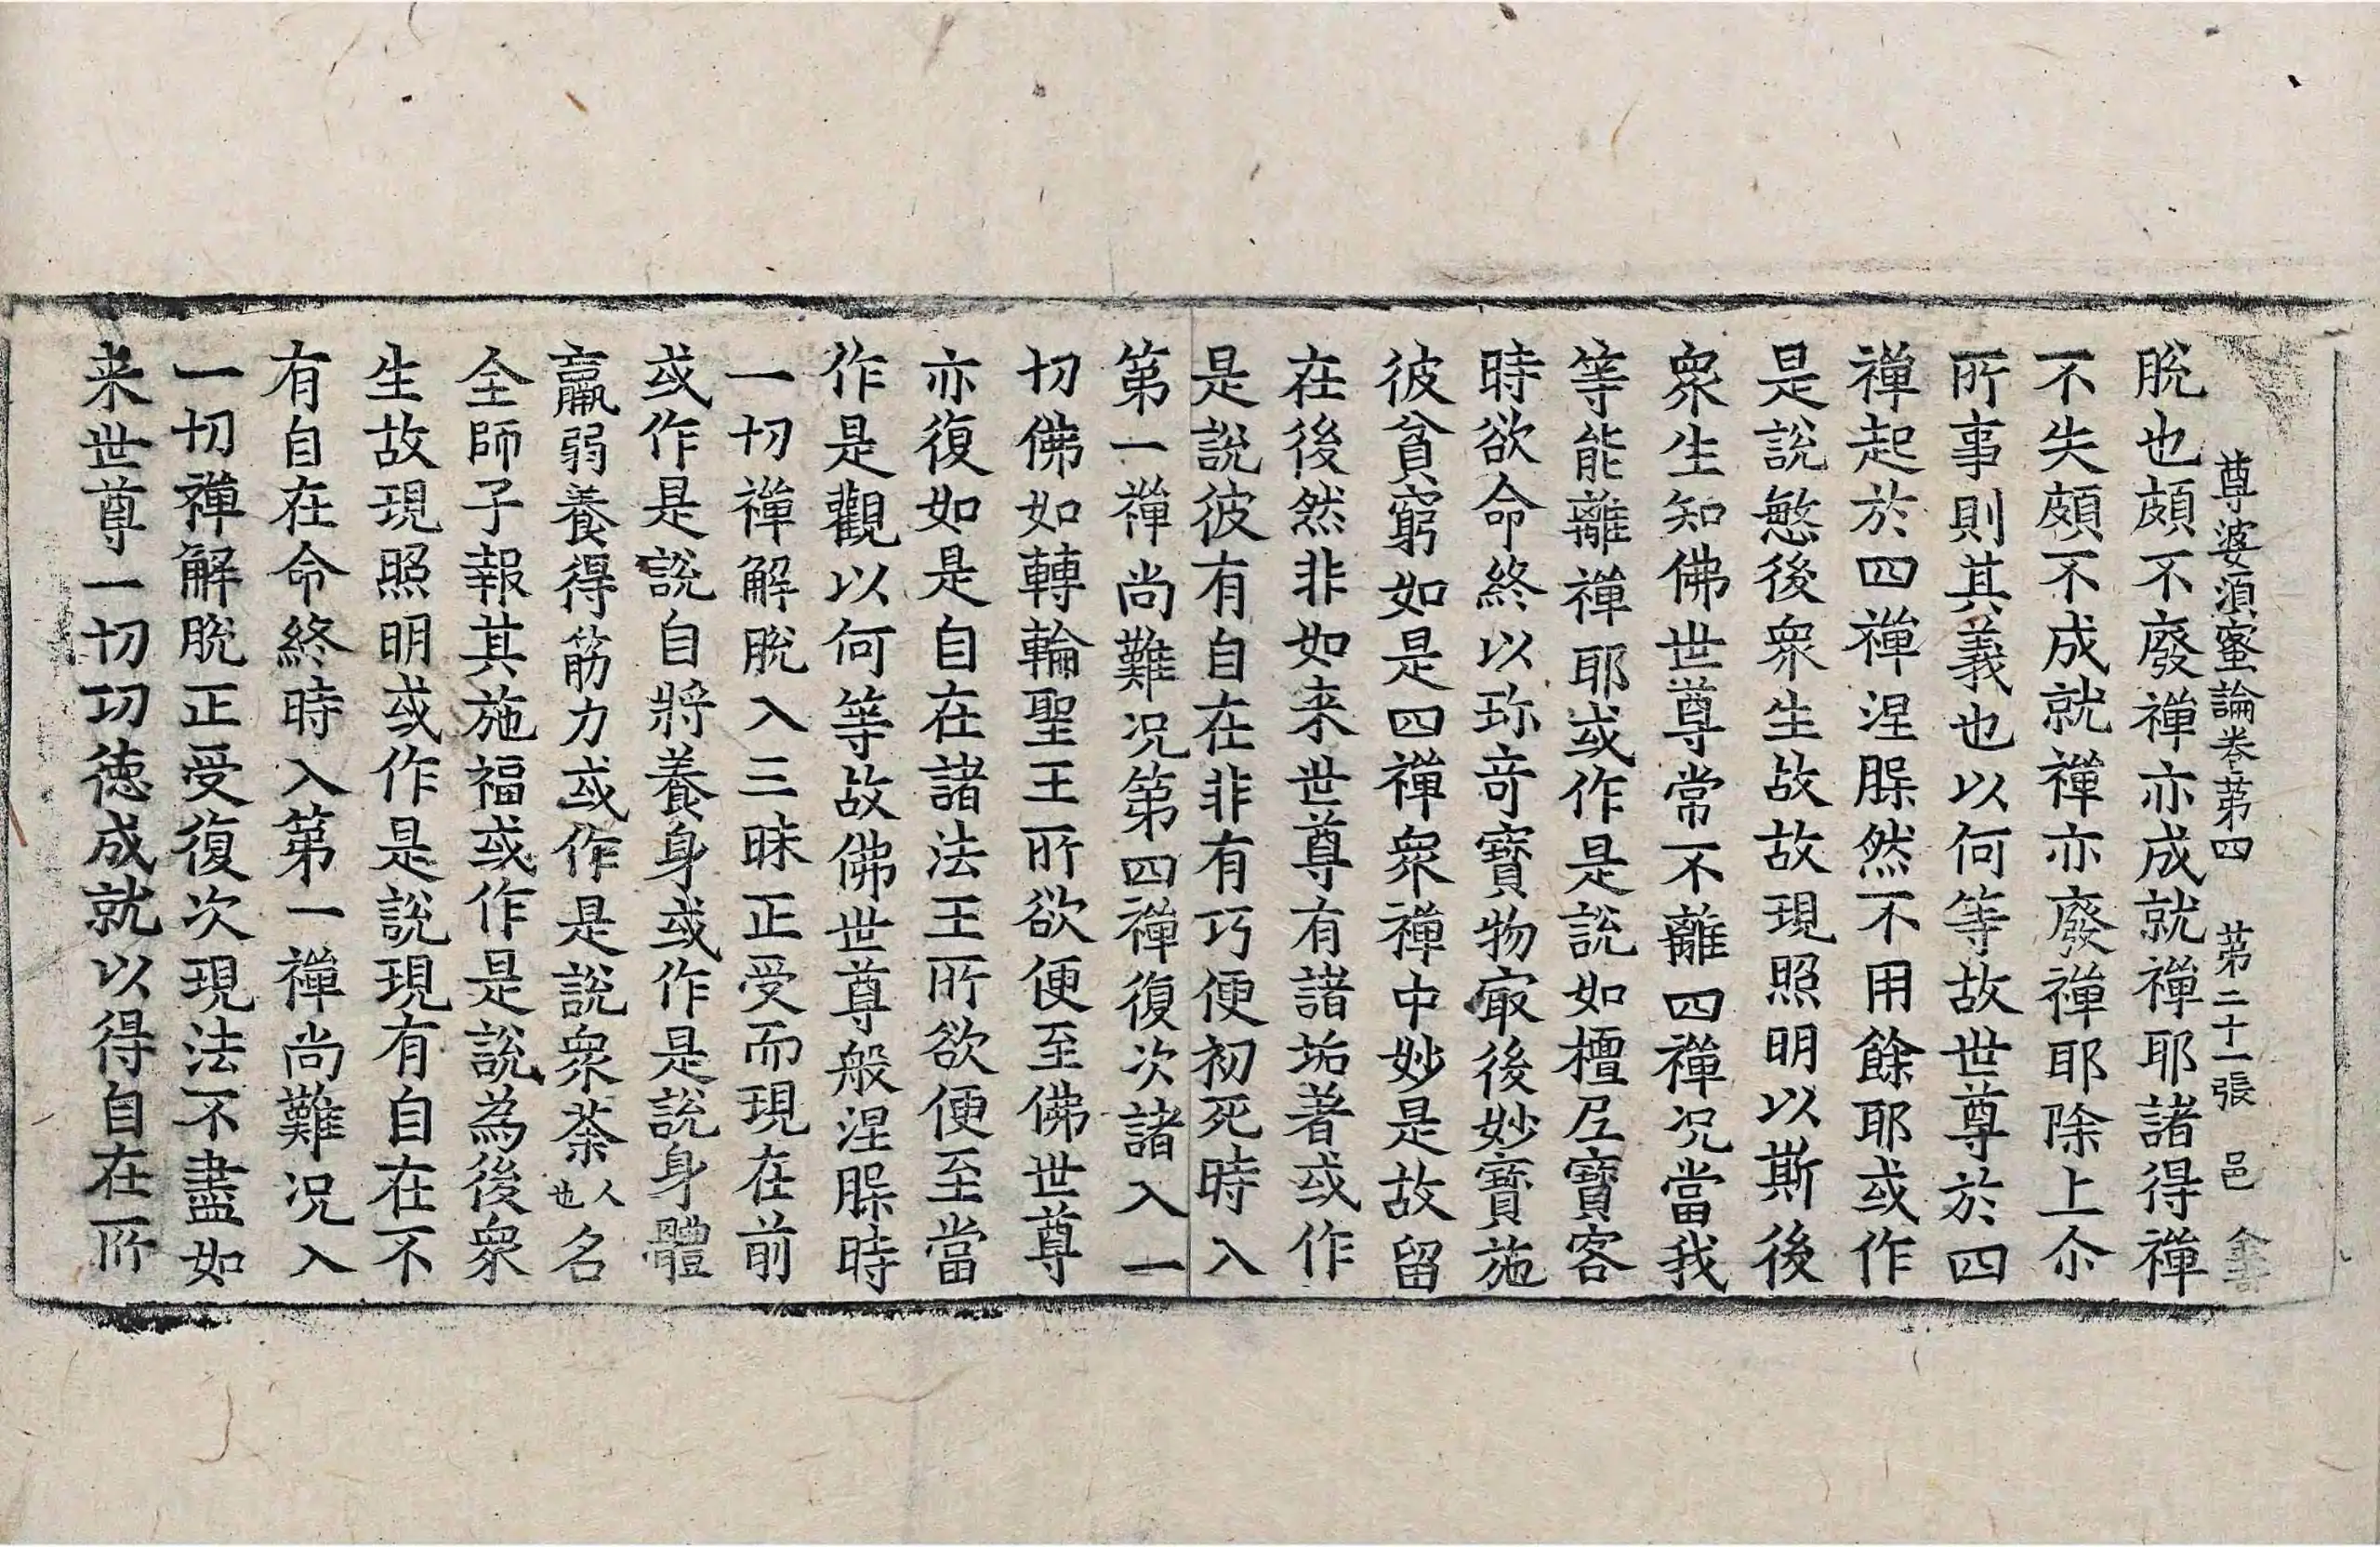 尊婆湏蜜論卷苐四　苐二十一張　邑
脫也頗不廢禪亦成就禪耶諸得禪
不失頗不成就禪亦廢禪耶除上尒
所事則其義也以何等故世尊於四
禪起於四禪涅槃然不用餘耶或作
是說慜後衆生故故現照明以斯後
衆生知佛世尊常不離四禪况當我
等能離禪耶或作是說如檀𡊮寶客
時欲命終以珎竒寶物㝡後妙寶施
彼貧窮如是四禪衆禪中妙是故留
在後然非如来世尊有諸垢著或作
是說彼有自在非有巧便初死時入
第一禪尚難况第四禪復次諸入一
切佛如轉輪聖王所欲便至佛世尊
亦復如是自在諸法王所欲便至當
作是觀以何等故佛世尊般涅槃時
一切禪解脫入三昧正受而現在前
或作是說自將養身或作是說身體
羸弱養得筋力或作是說衆荼人名也
全師子報其施福或作是說為後衆
生故現照明或作是說現有自在不
有自在命終時入第一禪尚難况入
一切禪解脫正受復次現法不盡如
来世尊一切功德成就以得自在所